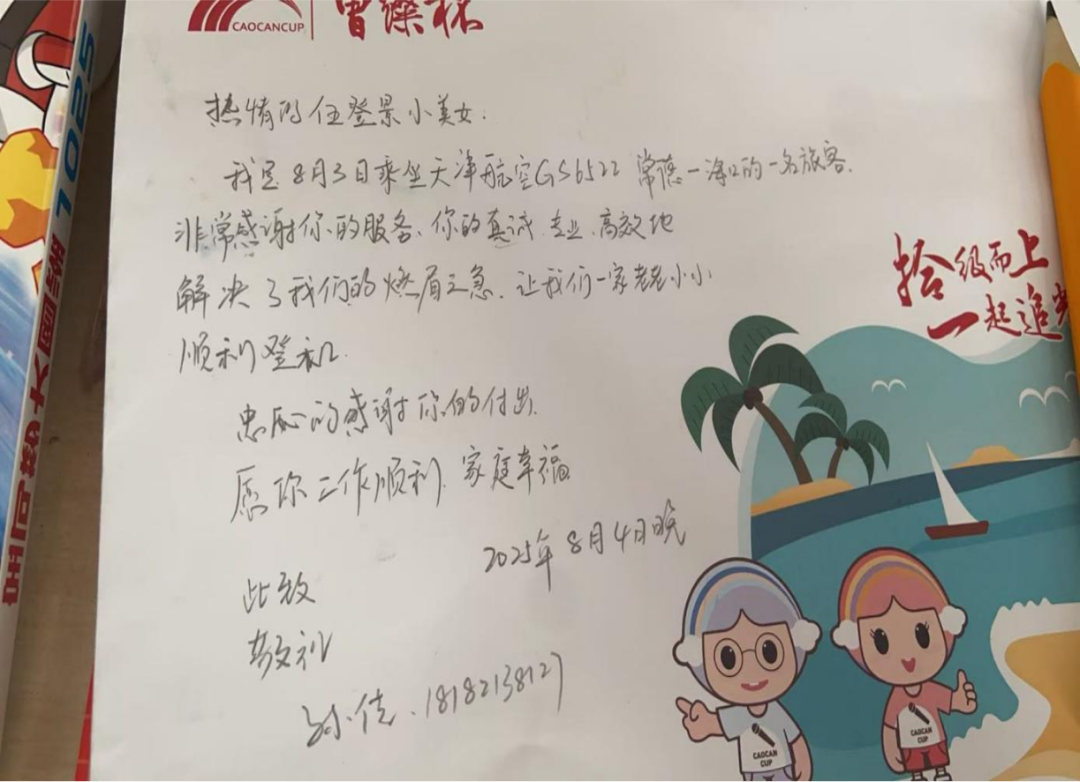 CAOCANCUP
曹灿杯
热情的任登景小美女:
我是8月3日乘坐天津航空GS6522 常德一海口的一名旅客.
非常感谢你的服务、你的真诚.专业.高效地
解决了我们的燃眉之急.让我们一家老老小小
顺利登机.
忠心的感谢你的付出.
愿你工作顺利.家庭幸福
2025年8月4日晚
此致
敬礼
孙佳.18182138127
拾级而上
一起追光
CAOCAN
CUP
CAOCAN
CUP